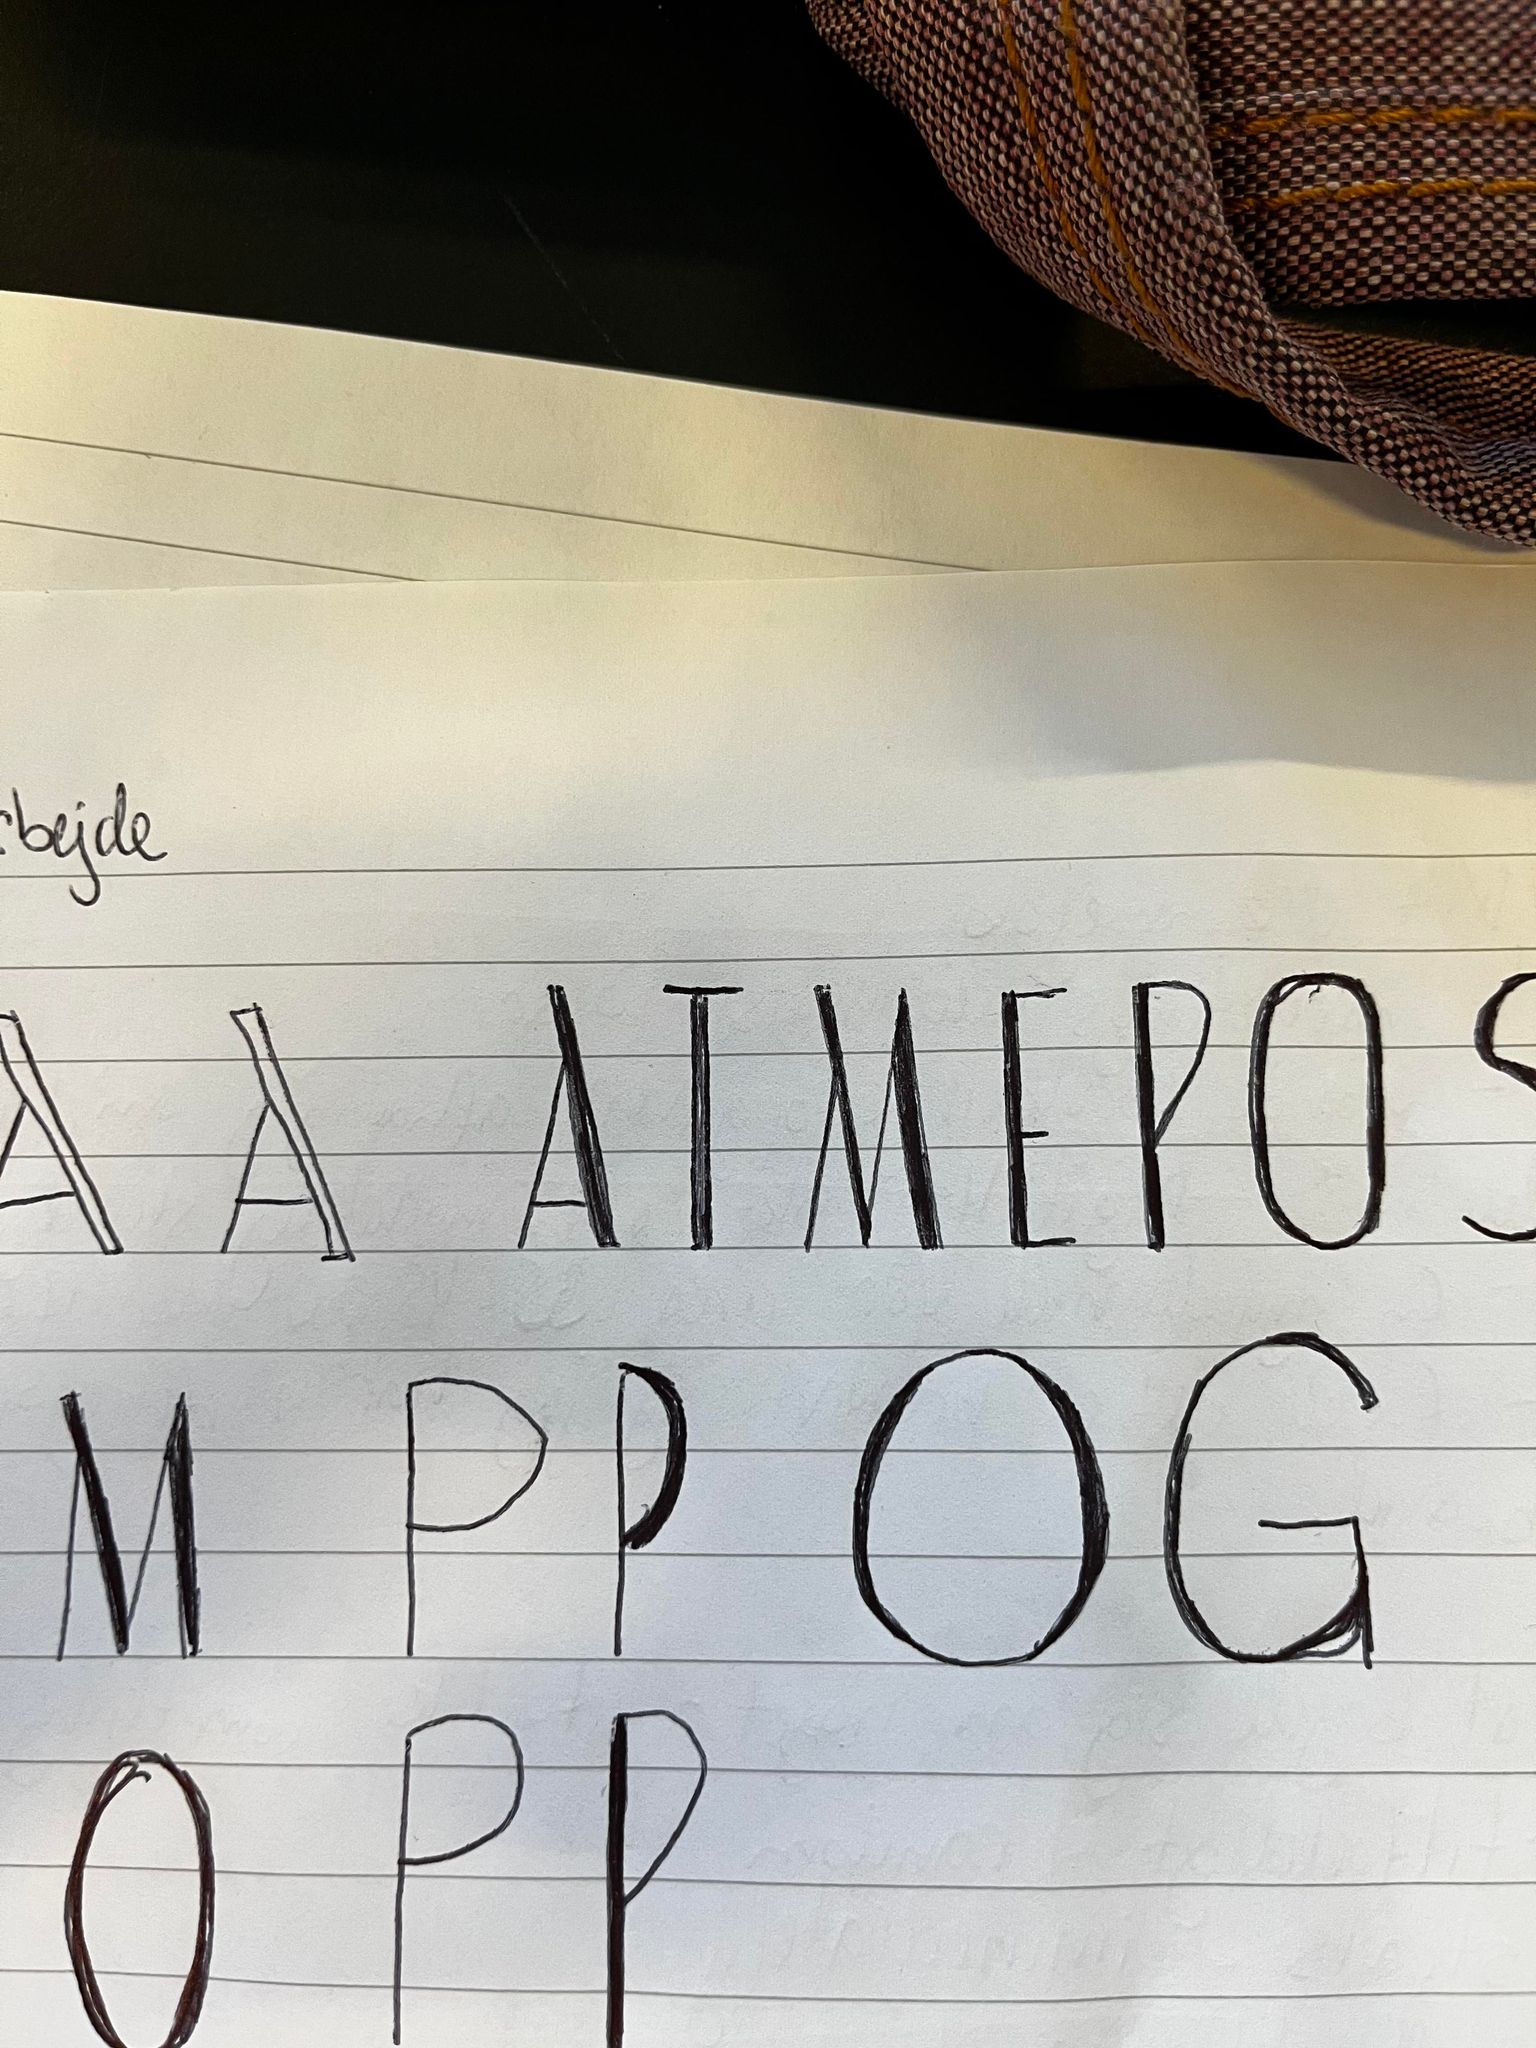 rbejde
A A ATMEPOS
M P P OG
O P P